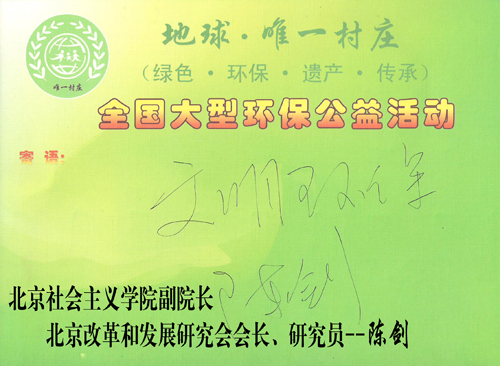 地球·唯一村庄
（绿色·环保·遗产·传承）
全国大型环保公益活动
唯一村庄
寄语:
文明环保
陈剑
北京社会主义学院副院长
北京改革和发展研究会会长、研究员--陈剑